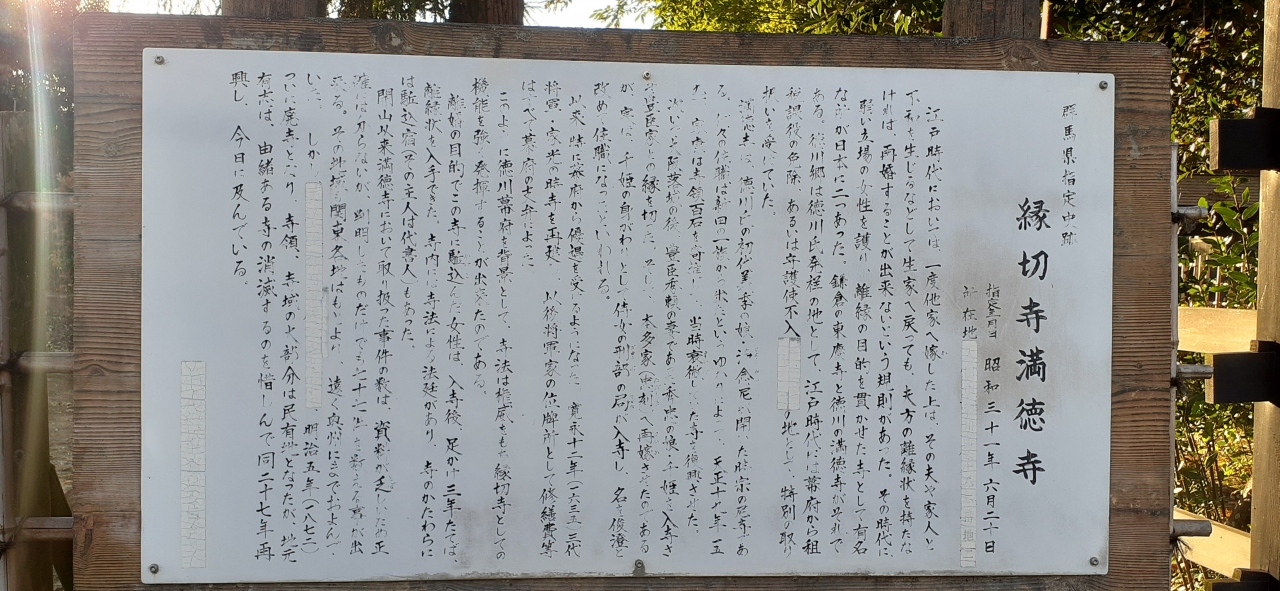 群馬県指定史跡
縁切寺満徳寺
昭和三十一年六月二十日
所在地
江戸時代においては、一度他家へ嫁した上は、その夫や家人と
不和を生じるなどして生家へ戻っても、夫方の離縁状を持たな
ければ、再婚することが出来ないという規則があった。その時代に、
弱い立場の女性を護り、離縁の目的を貫かせた寺として有名
な寺が日本に二つあった。鎌倉の東慶寺と徳川満徳寺がそれで
ある。徳川郷は徳川氏発祥の地として、江戸時代には幕府から租
税課役の免除、あるいは守護使不入の地として、特別の取り
扱いを受けていた。
満徳寺は、徳川氏の初代義季の娘、浄念尼が開いた時宗の尼寺であ
る。代々の住職は新田の一族から出たというゆいしょによって、天正十九年一五
は寺領百石を当時衰微していた寺を復興させた。
大坂落城の後、豊臣秀頼の妻であった秀忠の娘千姫を入寺さ
せ豊臣家との縁を切った。そして、本多家(忠刻)へ再嫁させたのである
が、実は、千姫の身がわりとして侍女の刑部の局が入寺し、名を俊澄と
改め住職になったといわれる。
以来、時に幕府から優遇を受けるようになった。寛永十二年(一六三五)三代
将軍・家光の時寺を再建、以後将軍家の位牌所として修繕費等
はすべて幕府の支弁によった
このように徳川幕府を背景として、寺法は権威をもち縁切寺としての
機能を強く発揮することが出来たのである。
離婚の目的でこの寺に駈込んだ女性は、入寺後、足かけ三年たてば、
離縁状を入手できた。寺内には寺法による法廷があり、寺のかたわらに
は駈込宿(その主人は代書人)もあった。
開山以来満徳寺において取り扱った事件の数は、資料が乏しいため正
確には分らないが、判明したものだけでも
その地域も関東各地はもとより、遠く信州にまでおよんで
いた。しかし明治五年(一八七二)
ついに廃寺となり、寺領、寺域の大部分は民有地となったが、地元
有志は、由緒ある寺の消滅するのを惜しんで同二十七年再
興し、今日に及んでいる。